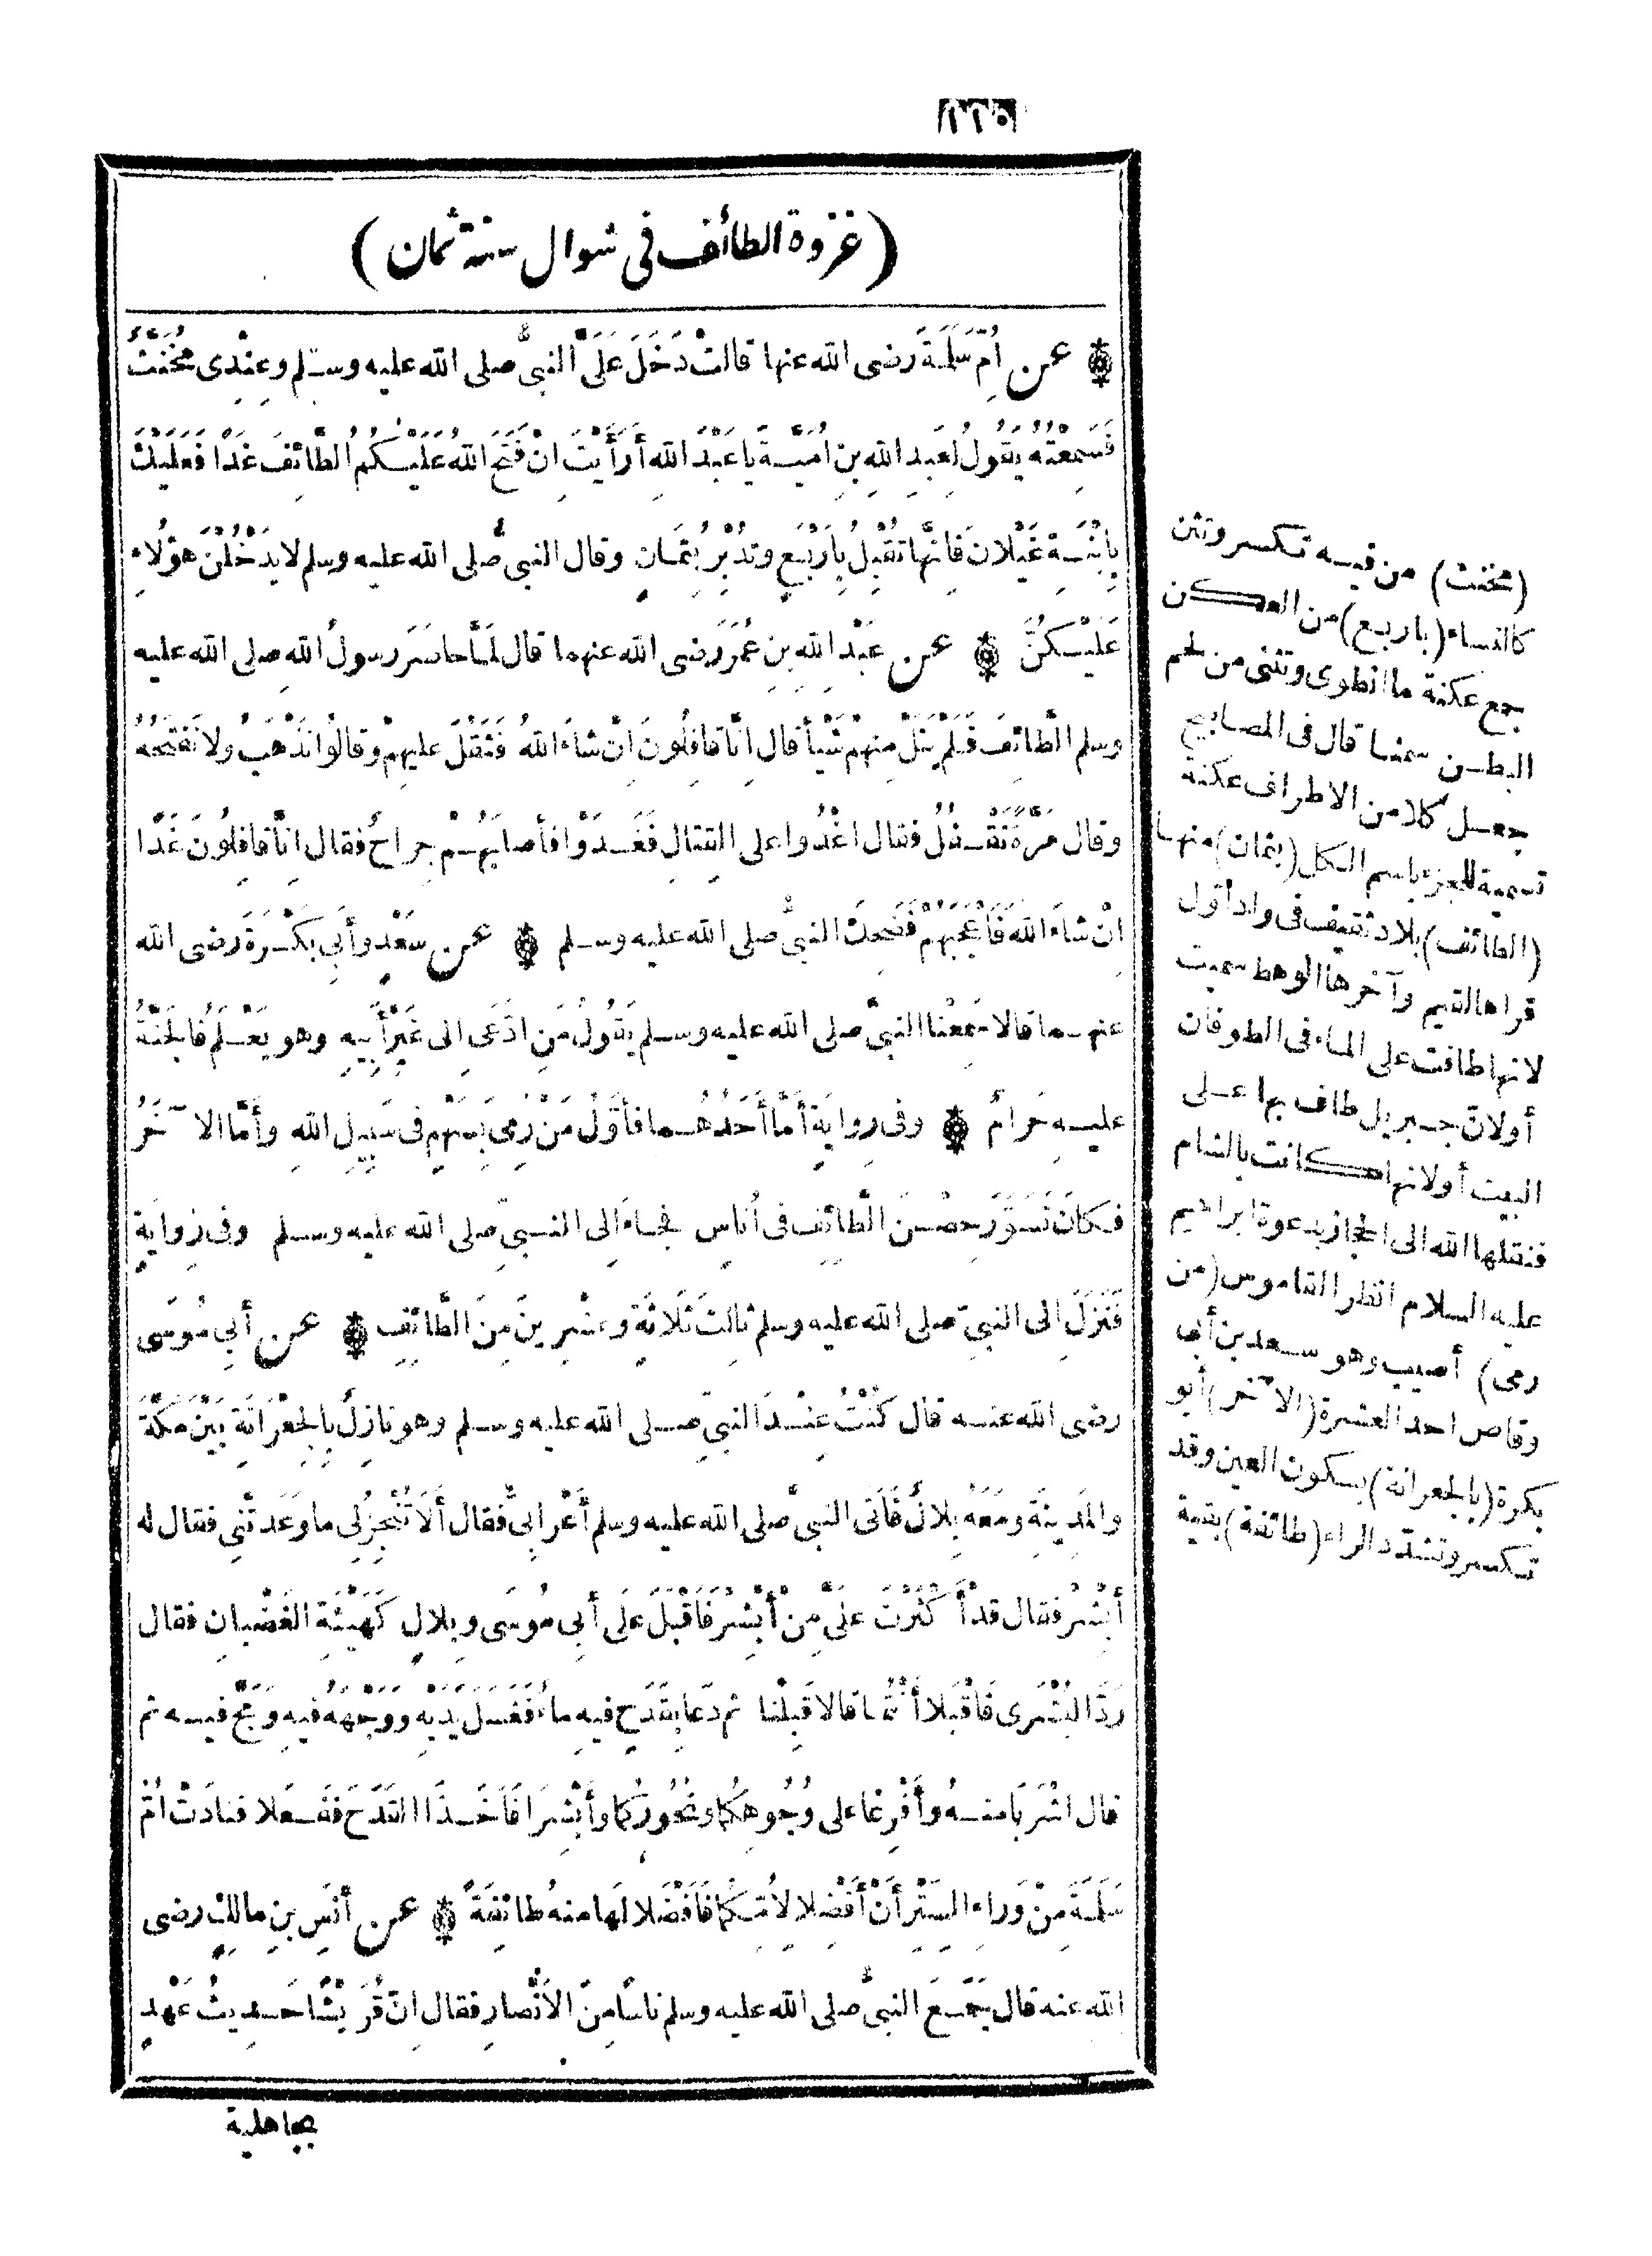 (غزوة الطائف فى شوال سنة ثمان)
عن اُمِّ سَلَمَةَ رضى الله عنها قالتْ دَخَلَ عَلَىَّ النبىُّ صلى الله عليه وسلم وعِنْدِى مُخَنَّثٌ
فَسَمِعْتُهُ يَقُولُ لِعَبدِ اللهِ بنِ اُمَيَّةَ يا عَبْدَ اللهِ أَرَأَيْتَ اِنْ فَتَحَ اللهُ عَلَيْكُمُ الطَّائِفَ غَدًا فَعَلَيْكَ
بِابْنَةِ غَيْلانَ فَاِنَّها تُقْبِلُ بِاَرْبَعٍ وتُدْبِرُ بِثَمَانٍ وقال النبىُّ صلى الله عليه وسلم لا يَدْخُلَنَّ هؤلاءِ
عَلَيْكُنَّ عن عَبْدِ اللهِ بنِ عُمَرَ رضى الله عنهما قال لَمَّا حاصَرَ رسولُ اللهِ صلى الله عليه
وسلم الطَّائِفَ فَلَمْ يَنَلْ مِنهمْ شَيْأً قال اِنَّا قافِلُونَ اِنْ شاءَ اللهُ فَثَقُلَ عليهِمْ وقالُوا نَذْهَبُ ولا نَفْتَحُهُ
وقال مَرَّةً نَقْفُلُ فقال اغْدُوا على القِتالِ فَغَدَوْا فأصابَهُمْ جِراحٌ فقال اِنَّا قافِلُونَ غَدًا
اِنْ شاءَ اللهُ فَاَعْجَبَهُمْ فَضَحِكَ النبىُّ صلى الله عليه وسلم عن سَعْدٍ وأَبِى بَكْرَةَ رضى الله
عنهما قالا سَمِعْنا النبىَّ صلى الله عليه وسلم يَقُولُ مَنِ ادَّعَى اِلى غَيْرِ أَبِيهِ وهو يَعْلَمُ فالجَنَّةُ
عليهِ حَرامٌ وفى رِوايَةٍ أَمَّا أَحَدُهُما فأَوَّلُ مَنْ رَمَى بِسَهْمٍ فى سَبِيلِ اللهِ وأَمَّا الآخَرُ
فَكانَ تَسَوَّرَ حِصْنَ الطَّائِفِ فى اُناسٍ فجاءَ اِلى النبىِّ صلى الله عليه وسلم وفى رِوايَةٍ
فَنَزَلَ اِلى النبىِّ صلى الله عليه وسلم ثالِثَ ثَلاثَةٍ وعشْرِينَ مِنَ الطَّائِفِ عن أَبِى مُوسَى
رضى الله عنه قال كُنْتُ عِنْدَ النبىِّ صلى الله عليه وسلم وهو نازِلٌ بالجِعْرَانَةِ بَيْنَ مَكَّةَ
والمَدِينَةِ ومَعَهُ بِلالٌ فَأَتَى النبىَّ صلى الله عليه وسلم أَعْرابِىٌّ فقال أَلَا تُنْجِزُلِى ما وَعَدتَنِى فقال له
أَبْشِرْ فقال قدْ أَكْثَرْتَ عَلَىَّ مِنْ أَبْشِرْ فَاَقْبَلَ عَلَى أَبِى مُوسَى وبِلالٍ كَهَيْئَةِ الغَضْبانِ فقال
رَدَّ البُشْرَى فَاقْبَلا أَنْتُما قالا قَبِلْنا ثم دَعا بِقَدَحٍ فيهِ ماءٌ فَغَسَلَ يَدَيْهِ ووَجْهَهُ فيهِ ومَجَّ فيه ثم
قال اشْرَبا منهُ وأَفْرِغا على وُجُوهِكُما ونُحُورِكُما وأَبْشِرَا فَاَخَذَا القَدَحَ فَفَعَلا فنادَتْ اُمُّ
سَلَمَةَ مِنْ وَراءِ السِّتْرِ أَنْ أَفْضِلا لِاُمِّكُما فَاَفْضَلا لَها منهُ طائِفَةً عن أَنَسِ بنِ مالِكٍ رضى
الله عنه قال جَمَعَ النبىُّ صلى الله عليه وسلم ناسًا مِنَ الاَنْصارِ فقال اِنَّ قُرَيْشًا حَدِيثُ عَهْدٍ
بجاهلية
(مخنث) من فيه تكسر وتثن
كالنساء (باربع) من العكن
جمع عكنة ما انطوى وتثنى من لحم
البطن سمنا قال فى المصابيح
جعل كلا من الاطراف عكنة
تسمية للجزء باسم الكل (بثمان) منها
(الطائف) بلاد ثقيف فى واد أول
قراها لقيم وآخرها الوهط سميت
لانها طافت على الماء فى الطوفان
أولان جبريل طاف بها على
البيت أولانها كانت بالشام
فنقلها الله الى الحجاز بدعوة ابراهيم
عليه السلام انظر القاموس (من
رمى) أصيب وهو سعد بن أبى
وقاص احد العشرة (الآخر) أبو
بكرة (بالجعرانة) بسكون العين وقد
تكسر وتشدد الراء (طائفة) بقية